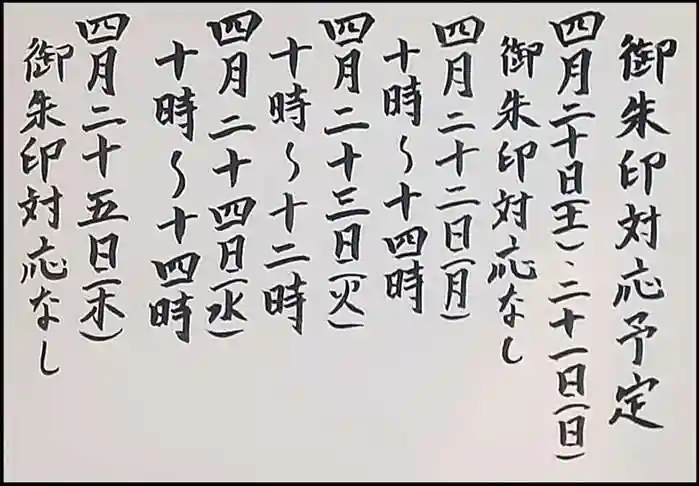 御朱印対応予定
四月二十日(土)、二十一日(日)
御朱印対応なし
四月二十二日(月)
十時〜十四時
四月二十三日(火)
十時〜十二時
四月二十四日(水)
十時〜十四時
四月二十五日(木)
御朱印対応なし